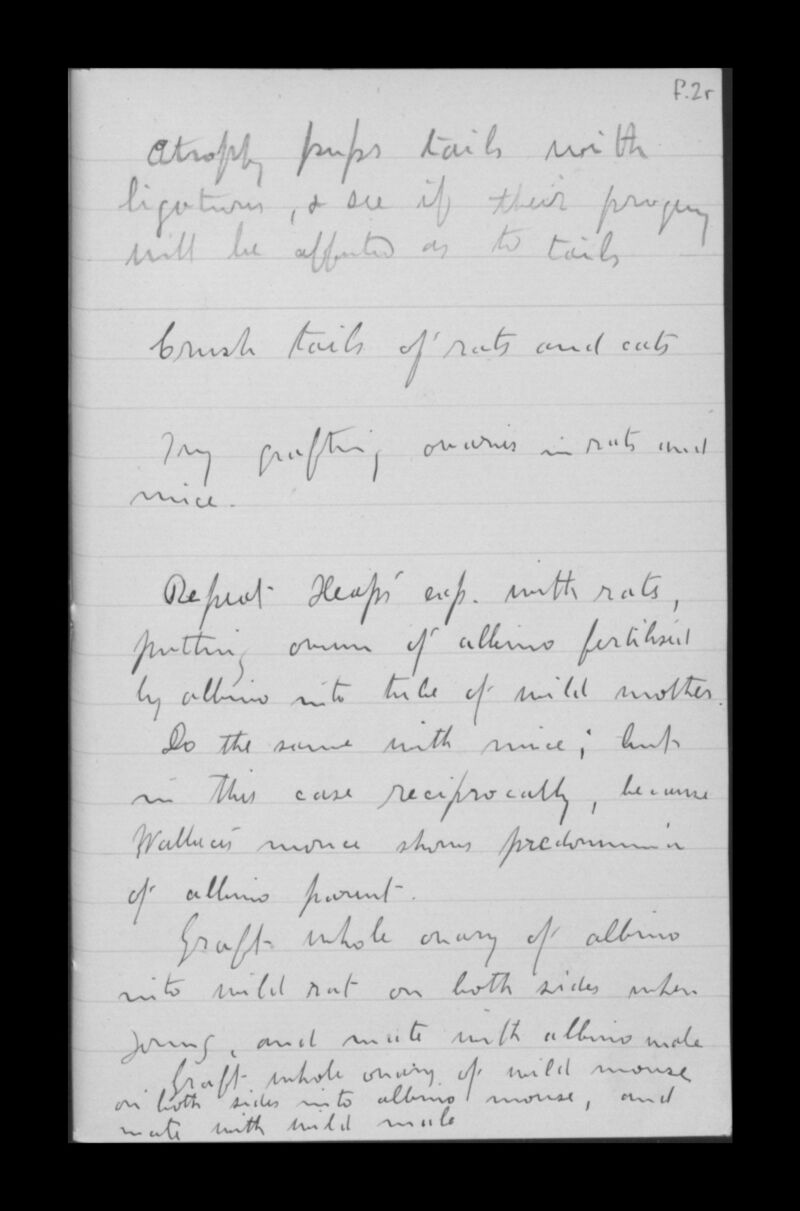 f.2r
Atrophy pups tails with
ligatures, & see if their progeny
will be affected as to tails
Crush tails of rats and cats
Try grafting ovaries in rats and
mice.
Repeat Heaps' exp. with rats,
putting ovum of albino fertilised
by albino into tube of wild mother.
Do the same with mice; but
in this case reciprocally, because
Wallace's mouse shows
of albino parent.
Graft whole ovary of albino
into wild rat on both sides when
young, and mate with albino male
Graft whole ovary of wild mouse
on both sides into albino mouse, and
mate with wild male